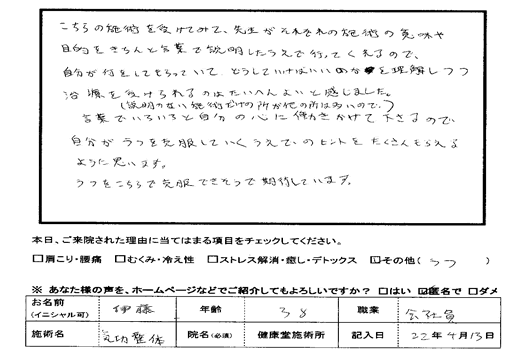 こちらの施術を受けてみて、先生がそれぞれの施術の意味や
目的をきちんと言葉で説明したうえで行ってくれるので、
自分が何をしてもらっていて、どうしていけばいいのかを理解しつつ
治療を受けられるのはたいへんよいと感じました。
(説明のない施術だけの所が他の所は多いので。)
言葉でいろいろと自分の心に働きかけて下さるので、
自分がうつを克服していくうえでのヒントをたくさんもらえる
ように思います。
うつをこちらで克服できそうで期待しています。
本日、ご来院された理由に当てはまる項目をチェックしてください。
□肩こり・腰痛 □むくみ・冷え性 □ストレス解消・癒し・デトックス ☑その他( うつ )
※ あなた様の声を、ホームページなどでご紹介してもよろしいですか? □はい ☑匿名で □ダメ
お名前 (イニシャル可) 伊藤 年齢 38 職業 会社員
施術名 気功整体 院名(必須) 健康堂施術所 記入日 22年4月13日